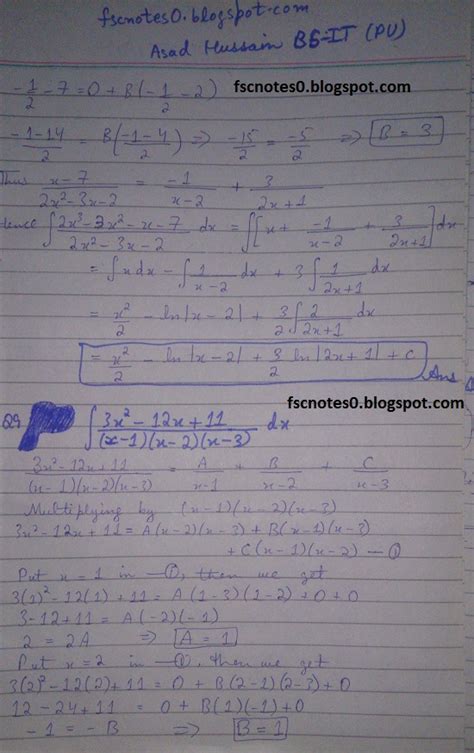 fscnotes0.blogspot.com
Asad Hussain BS-IT (PU)
-1/2 - 7 = 0 + B(-1/2 - 2) fscnotes0.blogspot.com
(-1-14)/2 = B(-1-4)/2 ⇒ -15/2 = -5/2 ⇒ B = 3
Thus (x-7)/(2x²-3x-2) = -1/(x-2) + 3/(2x+1)
Hence ∫(2x³-3x²-x-7)/(2x²-3x-2) dx = ∫[x + -1/(x-2) + 3/(2x+1)]dx
= ∫x dx - ∫1/(x-2) dx + 3∫1/(2x+1) dx
= x²/2 - ln|x-2| + 3/2 ∫2/(2x+1) dx
= x²/2 - ln|x-2| + 3/2 ln|2x+1| + c Ans
fscnotes0.blogspot.com
Q9. ∫(3x²-12x+11)/((x-1)(x-2)(x-3)) dx
(3x²-12x+11)/((x-1)(x-2)(x-3)) = A/(x-1) + B/(x-2) + C/(x-3)
Multiplying by (x-1)(x-2)(x-3)
3x²-12x+11 = A(x-2)(x-3) + B(x-1)(x-3)
+ C(x-1)(x-2) — ①
Put x = 1 in —①, then we get
3(1)²-12(1)+11 = A(1-3)(1-2)+0+0
3-12+11 = A(-2)(-1)
2 = 2A ⇒ A = 1
Put x = 2 in —①, then we get
3(2)²-12(2)+11 = 0 + B(2-1)(2-3)+0
12-24+11 = 0 + B(1)(-1)+0
-1 = -B ⇒ B = 1